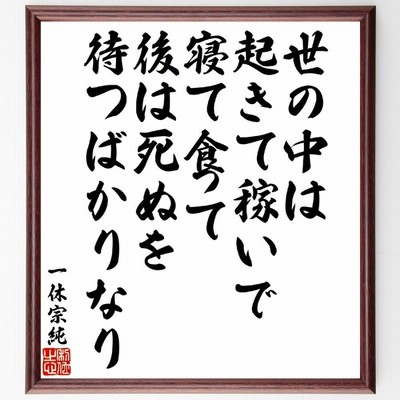 世の中は
起きて稼いで
寝て食って
後は死ぬを
待つばかりなり
一休宗純